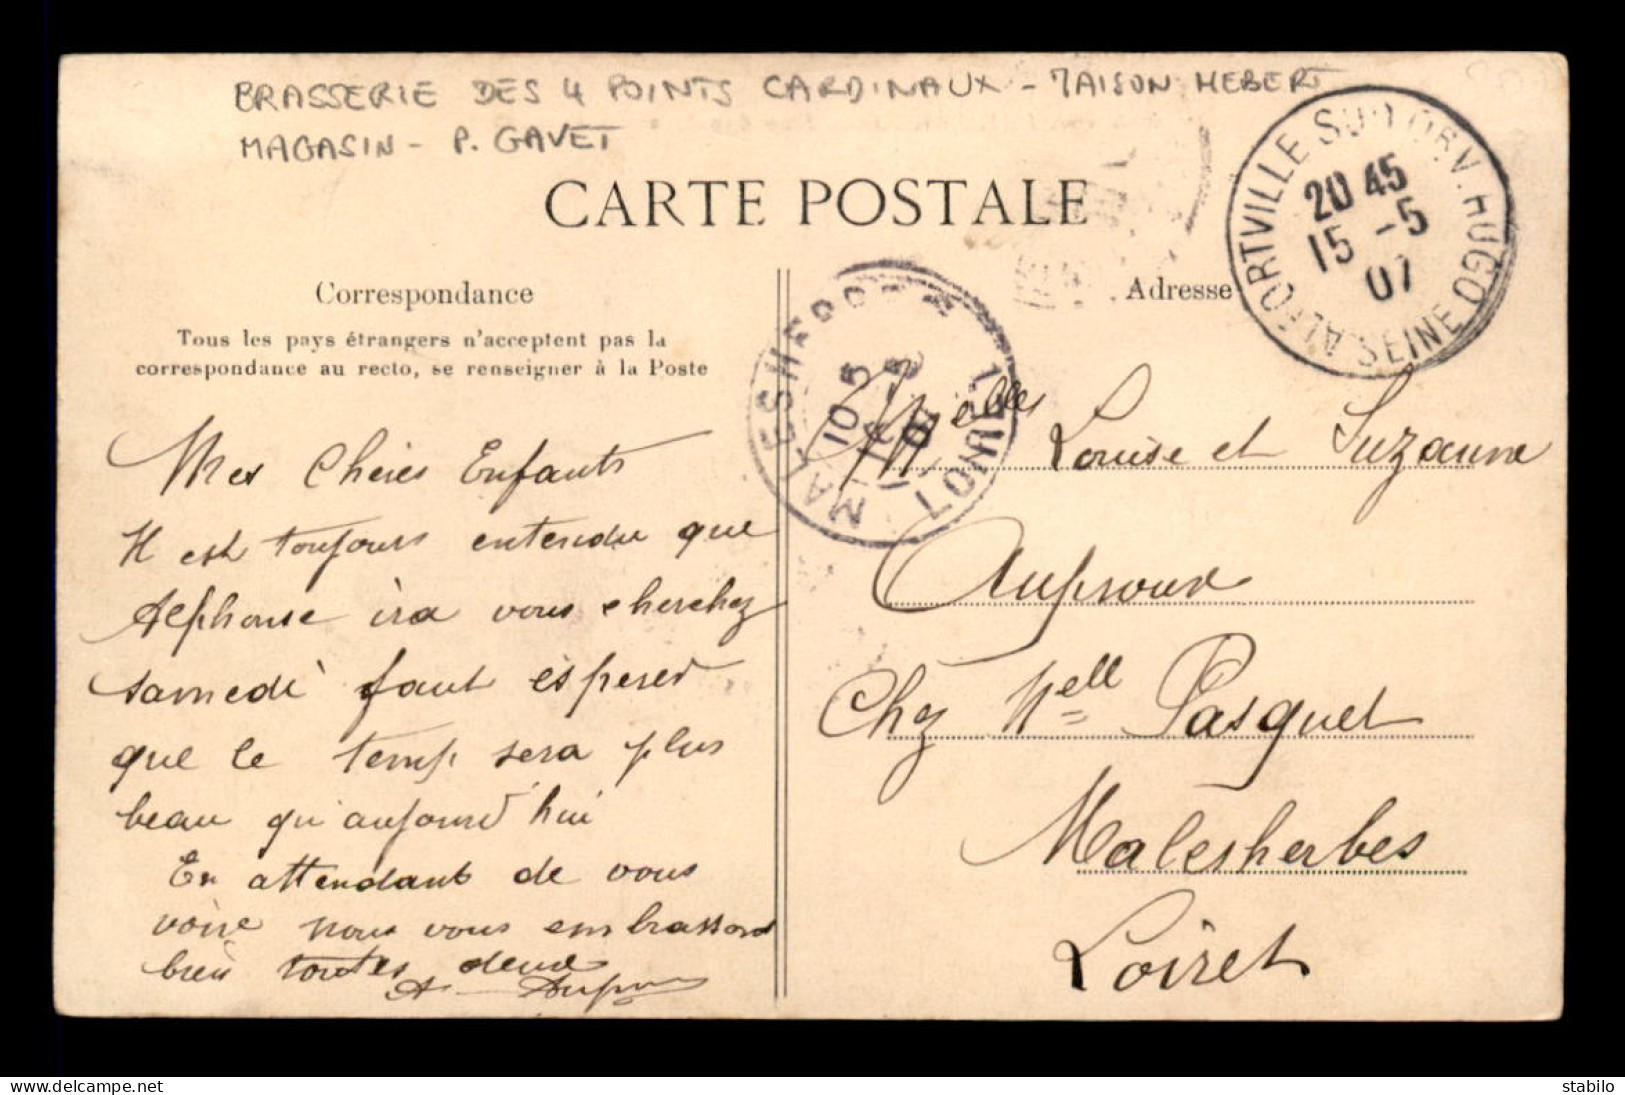 BRASSERIE DES 4 POINTS CARDINAUX - MAISON HEBERT
MAGASIN - P. GAVET
CARTE POSTALE
Correspondance
Tous les pays étrangers n'acceptent pas la
correspondance au recto, se renseigner à la Poste
Adresse
ALFORTVILLE SUCC V. HUGO
20 45
15 -5
07
SEINE
MALESHERBES
10 5
16 -5
07
LOIRET
Mes Chéres Enfants
Il est toujours entendu que
Alphonse ira vous cherchez
samedi faut éspérer
que le temp sera plus
beau qu'aujourd'hui
En attendant de vous
voire nous vous embrassons
bien toutes deux
A
Melles Louise et Suzanne
Auproux
Chez Melle Pasquet
Malesherbes
Loiret
delcampe.net
stabilo